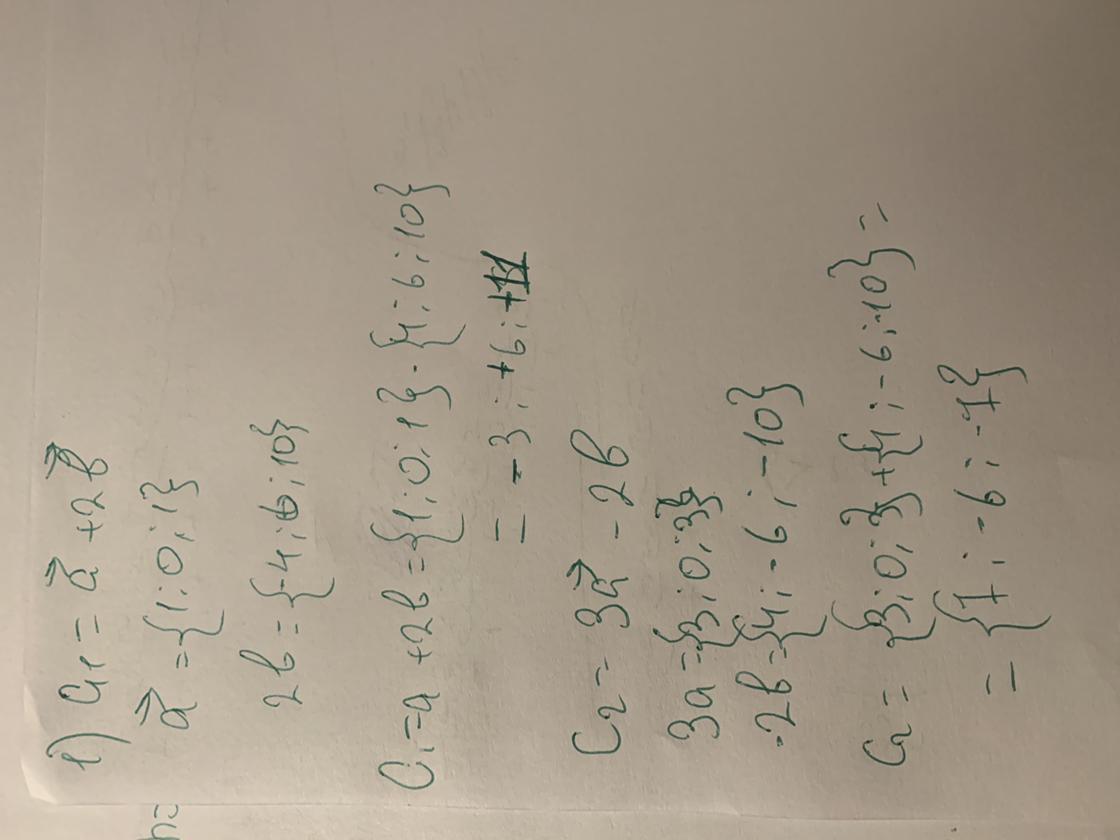 1) C₁ = a⃗ + 2b⃗
a⃗ = {1; 0; 1}
2b = {-4; 6; 10}
C₁ = a + 2b = {1; 0; 1} - {4; 6; 10}
= -3; +6; +11
C₂ = 3a⃗ - 2b
3a = {3; 0; 3}
-2b = {4; -6; -10}
C₂ = {3; 0; 3} + {4; -6; -10} =
= {7; -6; -7}
n=